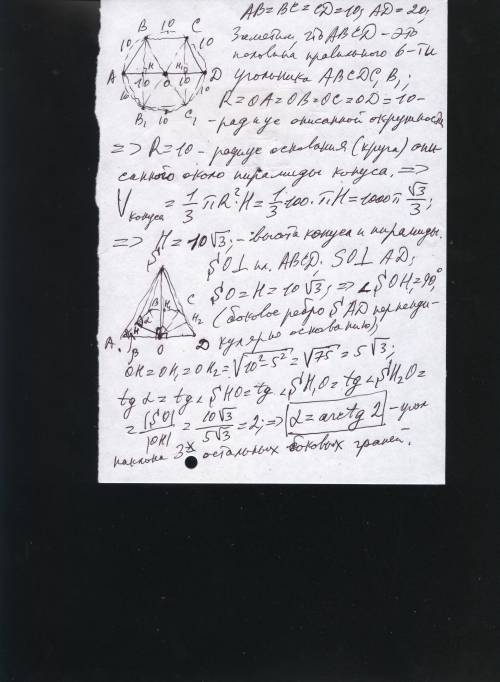 AB=BC=CD=10; AD=20;
Заметим, что ABCD – это
половина правильного 6-ти
угольника ABCDC₁B₁;
R=OA=OB=OC=OD=10-
- радиус описанной окружности
=> R=10 - радиус основания (круга) опи-
санного около пирамиды конуса. =>
V конуса = 1/3 πR²·H = 1/3·100·πH = 1000π √3/3;
=> H = 10√3; - высота конуса и пирамиды.
SO⊥ пл. ABCD; SO⊥ AD;
SO=H=10√3; => ∠SOH₁=90°,
(боковое ребро SAD перпенди-
кулярно основанию);
OH=OH₁=OH₂=√10²-5²=√75=5√3;
tg α = tg ∠SHO=tg ∠SH₁O=tg ∠SH₂O=
= |SO|/|OH| = 10√3/5√3 = 2; => α=arctg 2 - угол
наклона 3х остальных боковых граней.
B 10 C
10 10
A H H₁ D
10 O 10
10 10
B₁ 10 C₁
S
B H₁ C
H α H₂
A O D
B